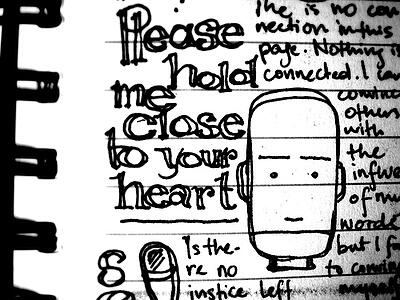 Please
hold
me
close
to your
heart
the is no con
nection in this
page. Nothing is
connected. I can
convince
others
with
the
influe
of my
words
but I f
to convinc
myself
Is the-
re no
justice left
S